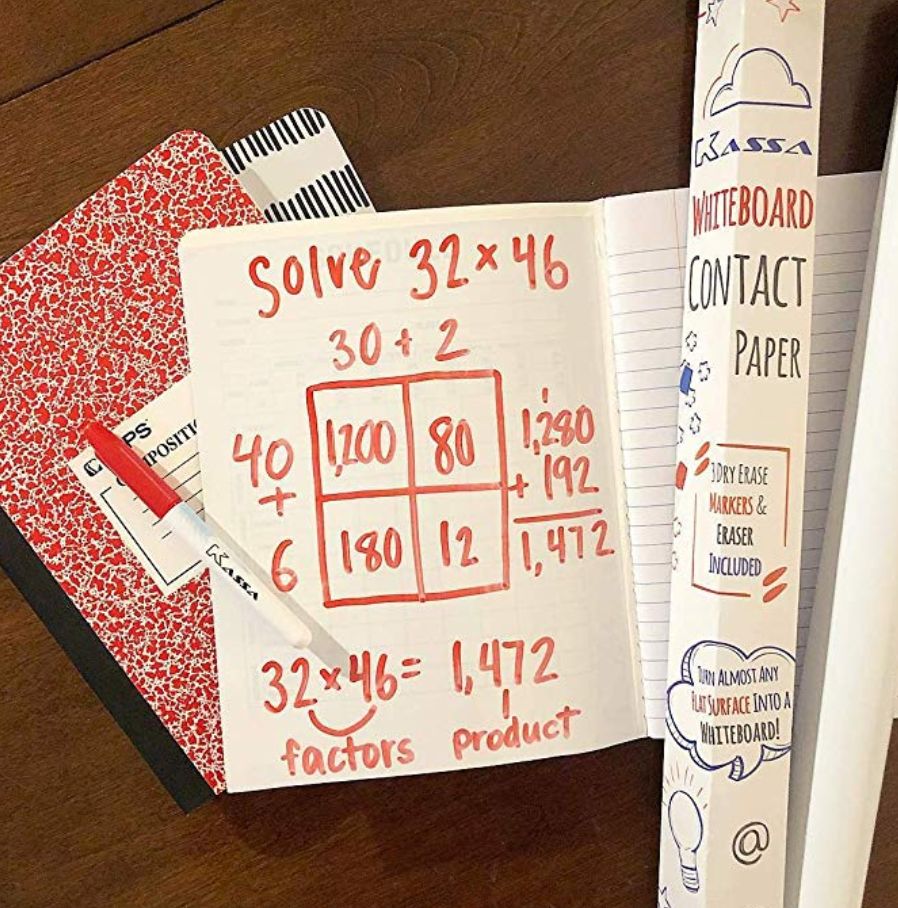 Solve 32 × 46
30 + 2
40
+
6
1,200
80
180
12
1
1,280
+ 192
1,472
32 × 46 = 1,472
factors product
KASSA
PS
COMPOSITI
KASSA
WHITEBOARD
CONTACT
PAPER
3 DRY ERASE
MARKERS &
ERASER
INCLUDED
TURN ALMOST ANY
FLAT SURFACE INTO A
WHITEBOARD!
@